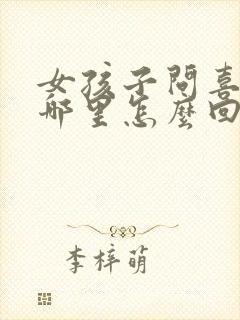 女孩子問喜
哪里怎麼回
李梓萌